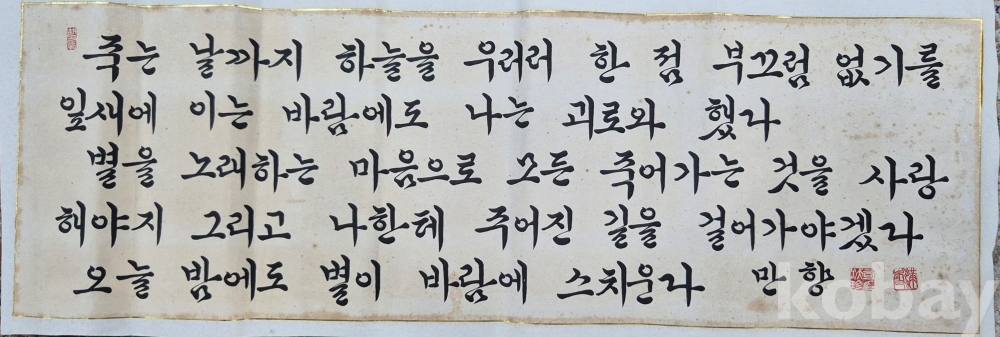 죽는 날까지 하늘을 우러러 한 점 부끄럼 없기를
잎새에 이는 바람에도 나는 괴로와 했다
별을 노래하는 마음으로 모든 죽어가는 것을 사랑
해야지 그리고 나한테 주어진 길을 걸어가야겠다
오늘 밤에도 별이 바람에 스치운다 만향
kobay